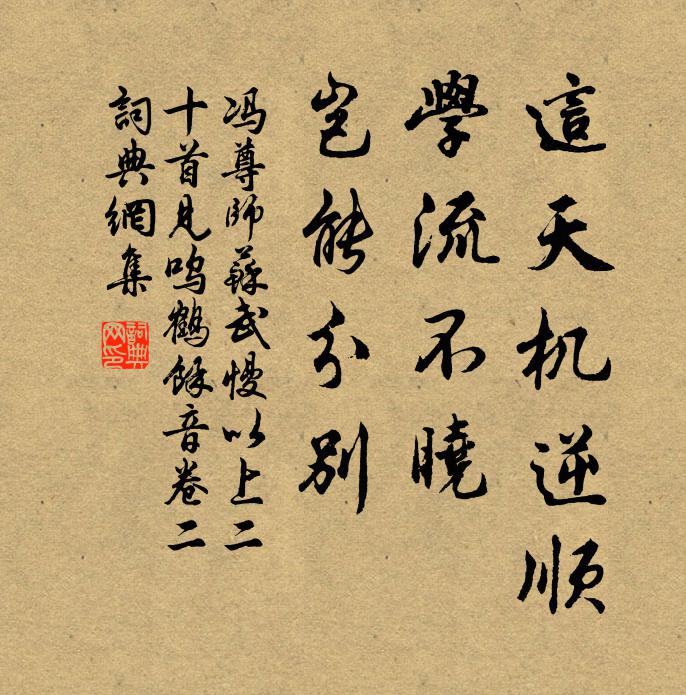 這天机逆順
學流不曉
豈能分別
冯尊師蘇武慢以上二
十首見鸣鶴餘音卷二
詞典網集
詞典
网印